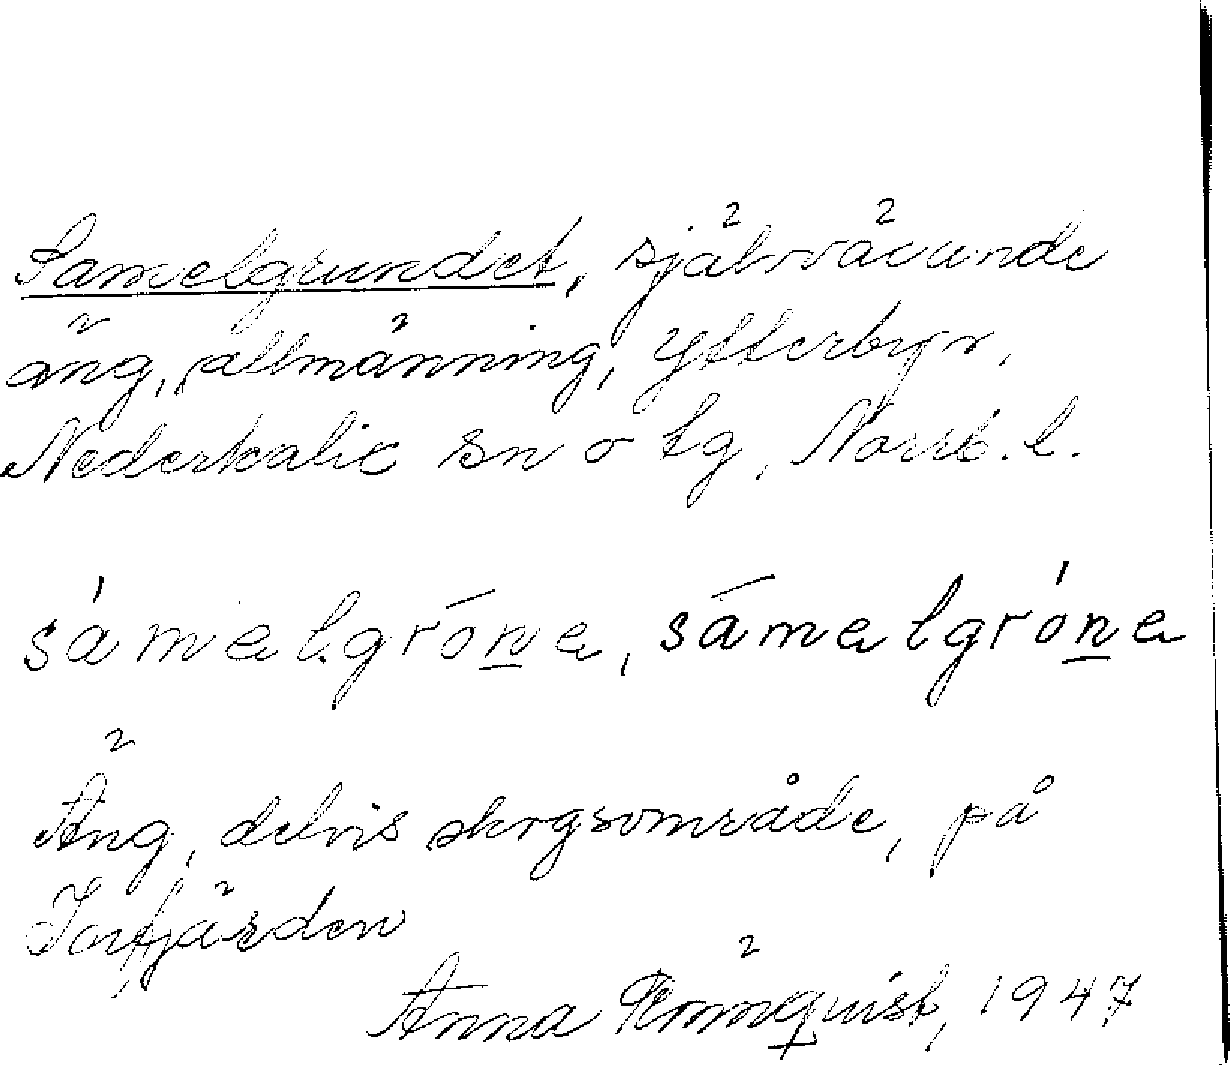 Samelgrundet, självvävande
äng, allmänning, Ytterbyn,
Nederkalix sn o tg, Norrb. l.
sámelgróne, sámelgróne
Äng, delvis skogsområde, på
Torfjärden
Anna Rönnquist, 1947